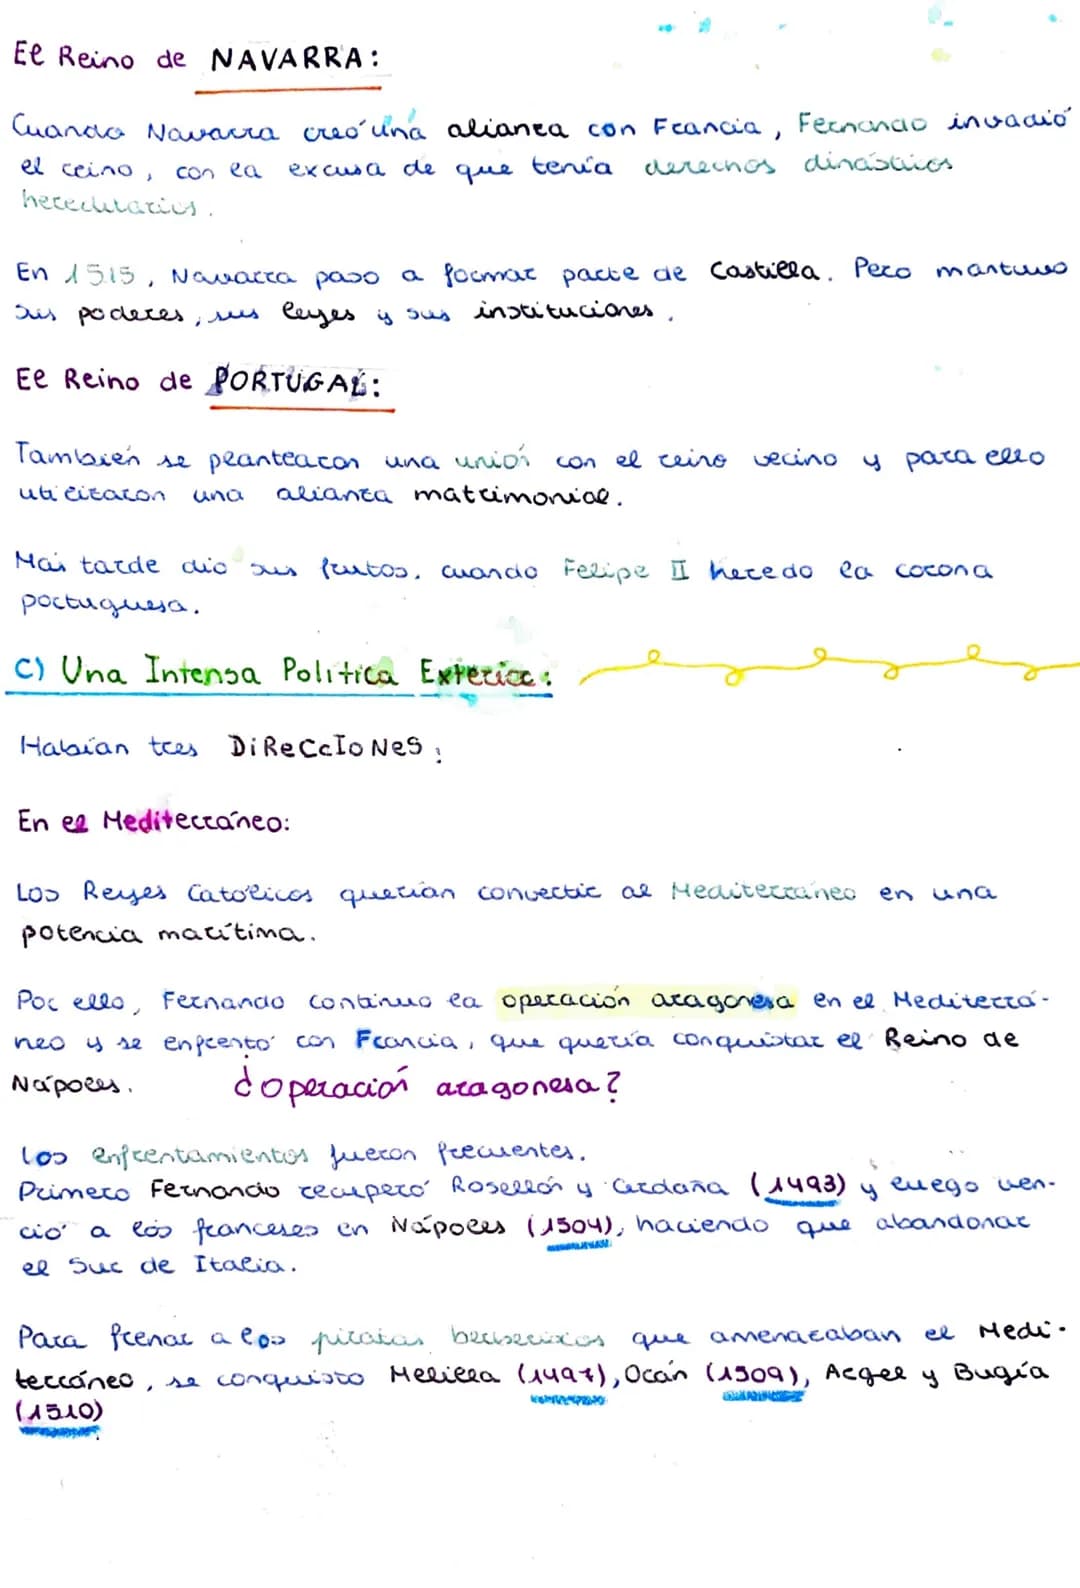 El Reino de NAVARRA:
Cuando Navarra creó una alianza con Francia, Fernando invadió
el reino, con la excusa de que tenía derechos dinásticos
hereditarios.
En 1515, Navarra paso a formar parte de Castilla. Pero mantuvo
sus poderes, sus leyes y sus instituciones.
El Reino de PORTUGAL:
También se plantearon una unión con el reino vecino y para ello
utilizaron una alianza matrimonial.
Más tarde dio sus frutos, cuando Felipe II heredo la corona
portuguesa.
C) Una Intensa Política Exterior:
Habían tres DiReCcIoNeS:
En el Mediterráneo:
Los Reyes Católicos querían convertir al Mediterráneo en una
potencia marítima.
Por ello, Fernando continuo la operación aragonesa en el Mediterrá-
neo y se enfrentó con Francia, que quería conquistar el Reino de
Nápoles. ¿operación aragonesa?
Los enfrentamientos fueron frecuentes.
Primero Fernando recuperó Rosellón y Cerdaña (1493) y luego ven-
ció a los franceses en Nápoles (1504), haciendo que abandonar
el Sur de Italia.
Para frenar a los piratas berberiscos que amenazaban el Medi-
terráneo, se conquisto Melilla (1497), Orán (1509), Argel y Bugía
(1510)